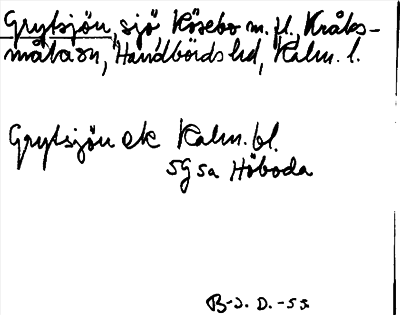 Grytsjön, sjö, Kösebo m. fl., Kråks-
måla sn, Handbörds hd, Kalm. l.
Grytsjön ek Kalm. bl.
5G sa Höboda
B-s. D. -55.